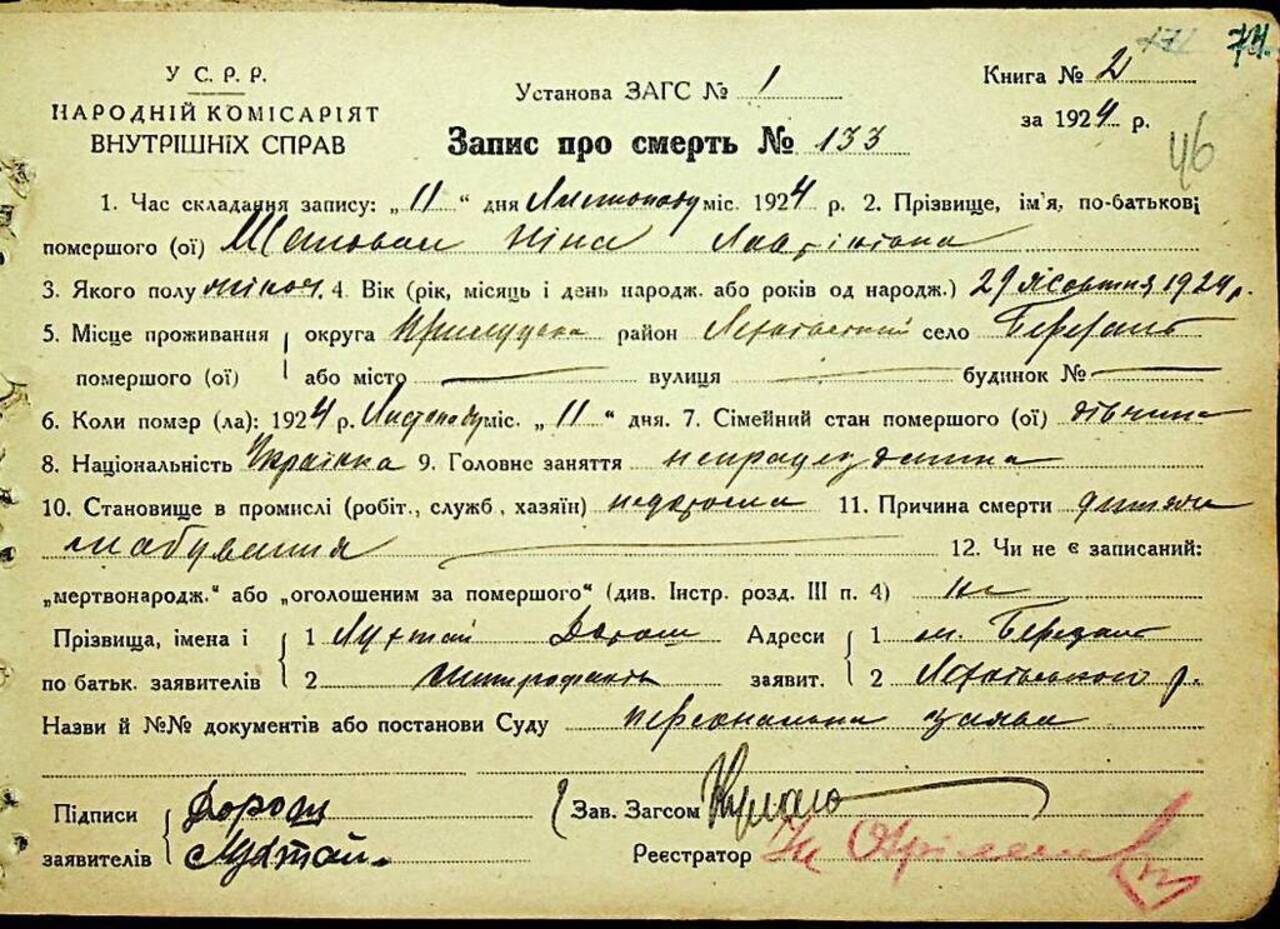 74.
У С. Р. Р.
НАРОДНІЙ КОМІСАРІЯТ
ВНУТРІШНІХ СПРАВ
Установа ЗАГС № 1
Книга № 2
за 1924 р.
46
Запис про смерть № 133
1. Час складання запису: „11“ дня Листопаду міс. 1924 р. 2. Прізвище, ім'я, по-батькові
помершого (ої) Шаповал Ніна
3. Якого полу жіноч. 4. Вік (рік, місяць і день народж. або років од народж.) 29 Жовтня 1924 р.
5. Місце проживання округа Прилуцька район село Березань
помершого (ої) або місто — вулиця — будинок № —
6. Коли помер (ла): 1924 р. Листопаду міс. „11“ дня. 7. Сімейний стан помершого (ої) дівчина
8. Національність Українка 9. Головне заняття непрацездатна
10. Становище в промислі (робіт., служб, хазяїн) 11. Причина смерти
12. Чи не є записаний:
„мертвонародж.“ або „оголошеним за помершого“ (див. Інстр. розд. III п. 4) ні
Прізвища, імена і 1 Дорош Адреси 1 м. Березань
по батьк. заявителів 2 заявит. 2 р.
Назви й №№ документів або постанови Суду персональна заява
Підписи Дорош Зав. Загсом
заявителів Реєстратор